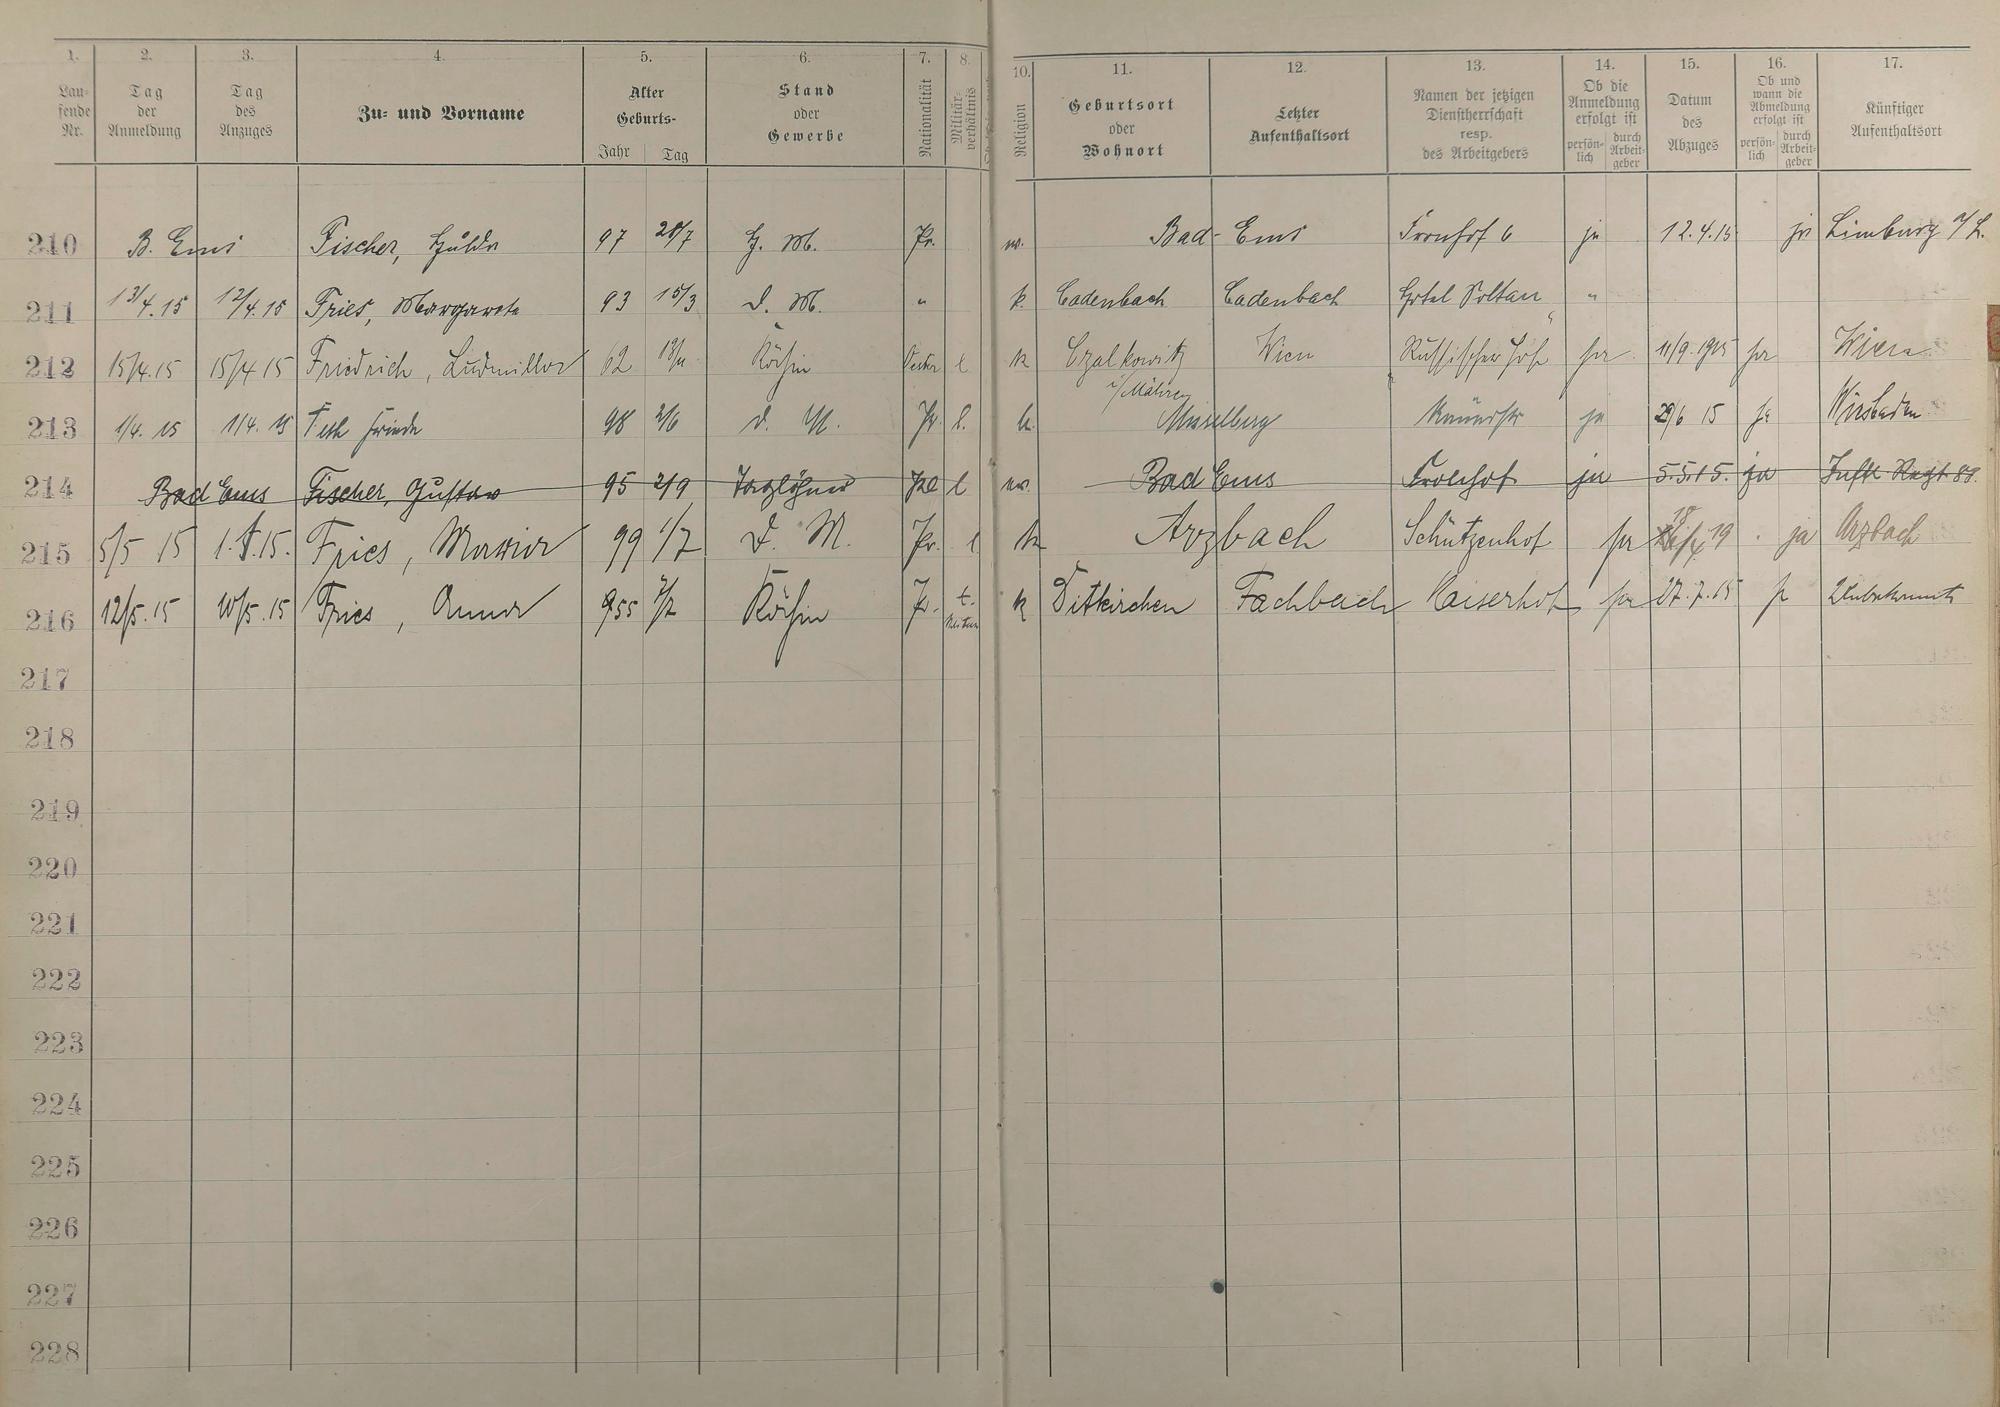 1. 2. 3. 4. 5. 6. 7. 8. 10. 11. 12. 13. 14. 15. 16. 17.
Laufende Nr. Tag der Anmeldung Tag des Anzuges Zu- und Vorname Alter Geburts- Jahr Tag Stand oder Gewerbe Nationalität Militärverhältnis Religion Geburtsort oder Wohnort Letzter Aufenthaltsort Namen der jetzigen Dienstherrschaft resp. des Arbeitgebers Ob die Anmeldung erfolgt ist persönlich durch Arbeitgeber Datum des Abzuges Ob und wann die Abmeldung erfolgt ist persönlich durch Arbeitgeber Künftiger Aufenthaltsort
210 B. Ems Fischer, Hulda 97 28/7 H. M. Pr. ev. Bad-Ems Fronhof 6 ja 12.4.15 ja Limburg a/L.
211 13/4.15 12/4.15 Fries, Margarete 93 15/3 D. M. " k. Cadenbach Cadenbach Hotel Soltau "
212 15/4.15 15/4 15 Friedrich, Ludmilla 62 Köchin l k Wien Russischer Hof ja 11/9.1915 ja Wien
213 1/4. 15 1/4. 15 Frieda 98 2/6 D. M. Pr. l. k. ja 29/6 15 ja Wiesbaden
214 Bad Ems Fischer, Gustav 95 2/9 Taglöhner l ev. Bad Ems Fronhof ja 5.5.15. ja Inftr Regt 88.
215 5/5 15 1.5.15. Fries, Maria 99 1/7 D. M. Pr. l k Arzbach Schützenhof ja 18 19 ja Arzbach
216 12/5.15 10/5.15 Fries, Anna 55 7/2 Köchin Pr. k Ditkirchen Fachbach Kaiserhof ja 27.7.15 ja Unbekannt
217
218
219
220
221
222
223
224
225
226
227
228